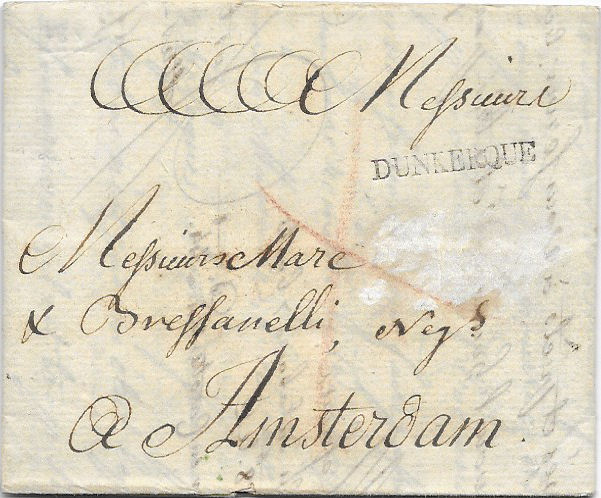 Messieurs
DUNKERQUE
Messieurs Marc
& Bressanelli, Negs
@ Amsterdam.